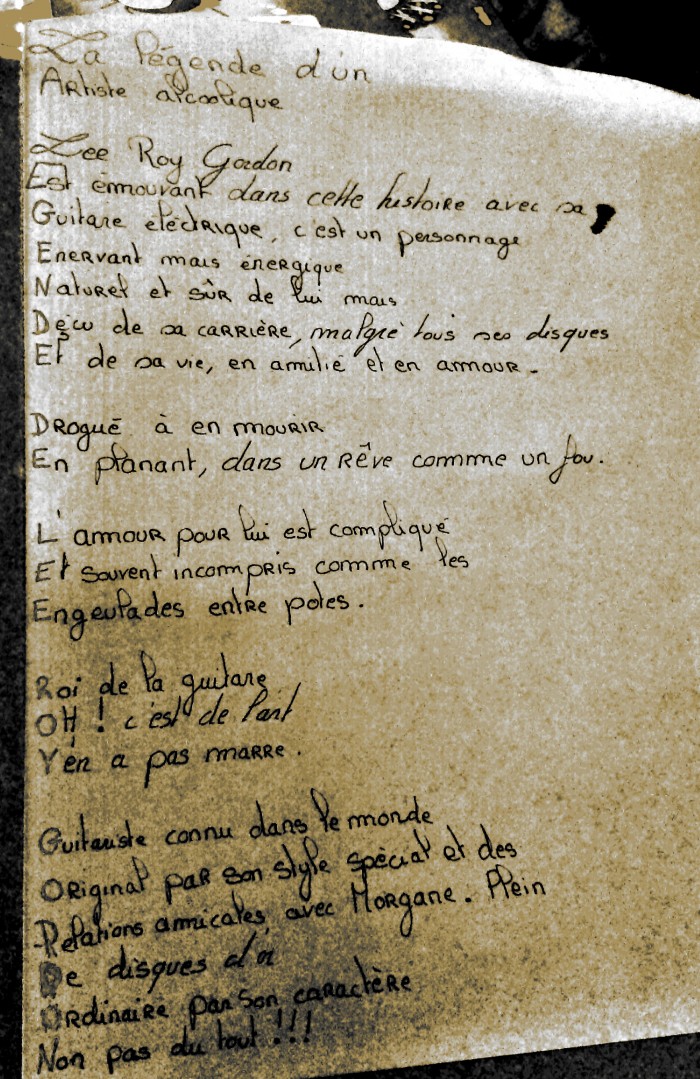 La légende d'un
Artiste alcoolique
Lee Roy Gordon
Est émouvant dans cette histoire avec sa
Guitare eléctrique, c'est un personnage
Enervant mais énergique
Naturel et sûr de lui mais
Deçu de sa carrière, malgré tous ses disques
Et de sa vie, en amitié et en amour.
Drogué à en mourir
En planant, dans un rêve comme un fou.
L'amour pour lui est compliqué
Et souvent incompris comme les
Engeulades entre potes.
Roi de la guitare
OH ! c'est de l'art
Y'en a pas marre.
Guitariste connu dans le monde
Original par son style spécial et des
Relations amicales avec Morgane. Plein
De disques d'or
Ordinaire par son caractère
Non pas du tout !!!